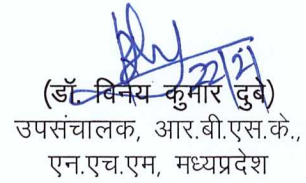 22/2
(डॉ. विनय कुमार दुबे)
उपसंचालक, आर.बी.एस.के.,
एन.एच.एम, मध्यप्रदेश